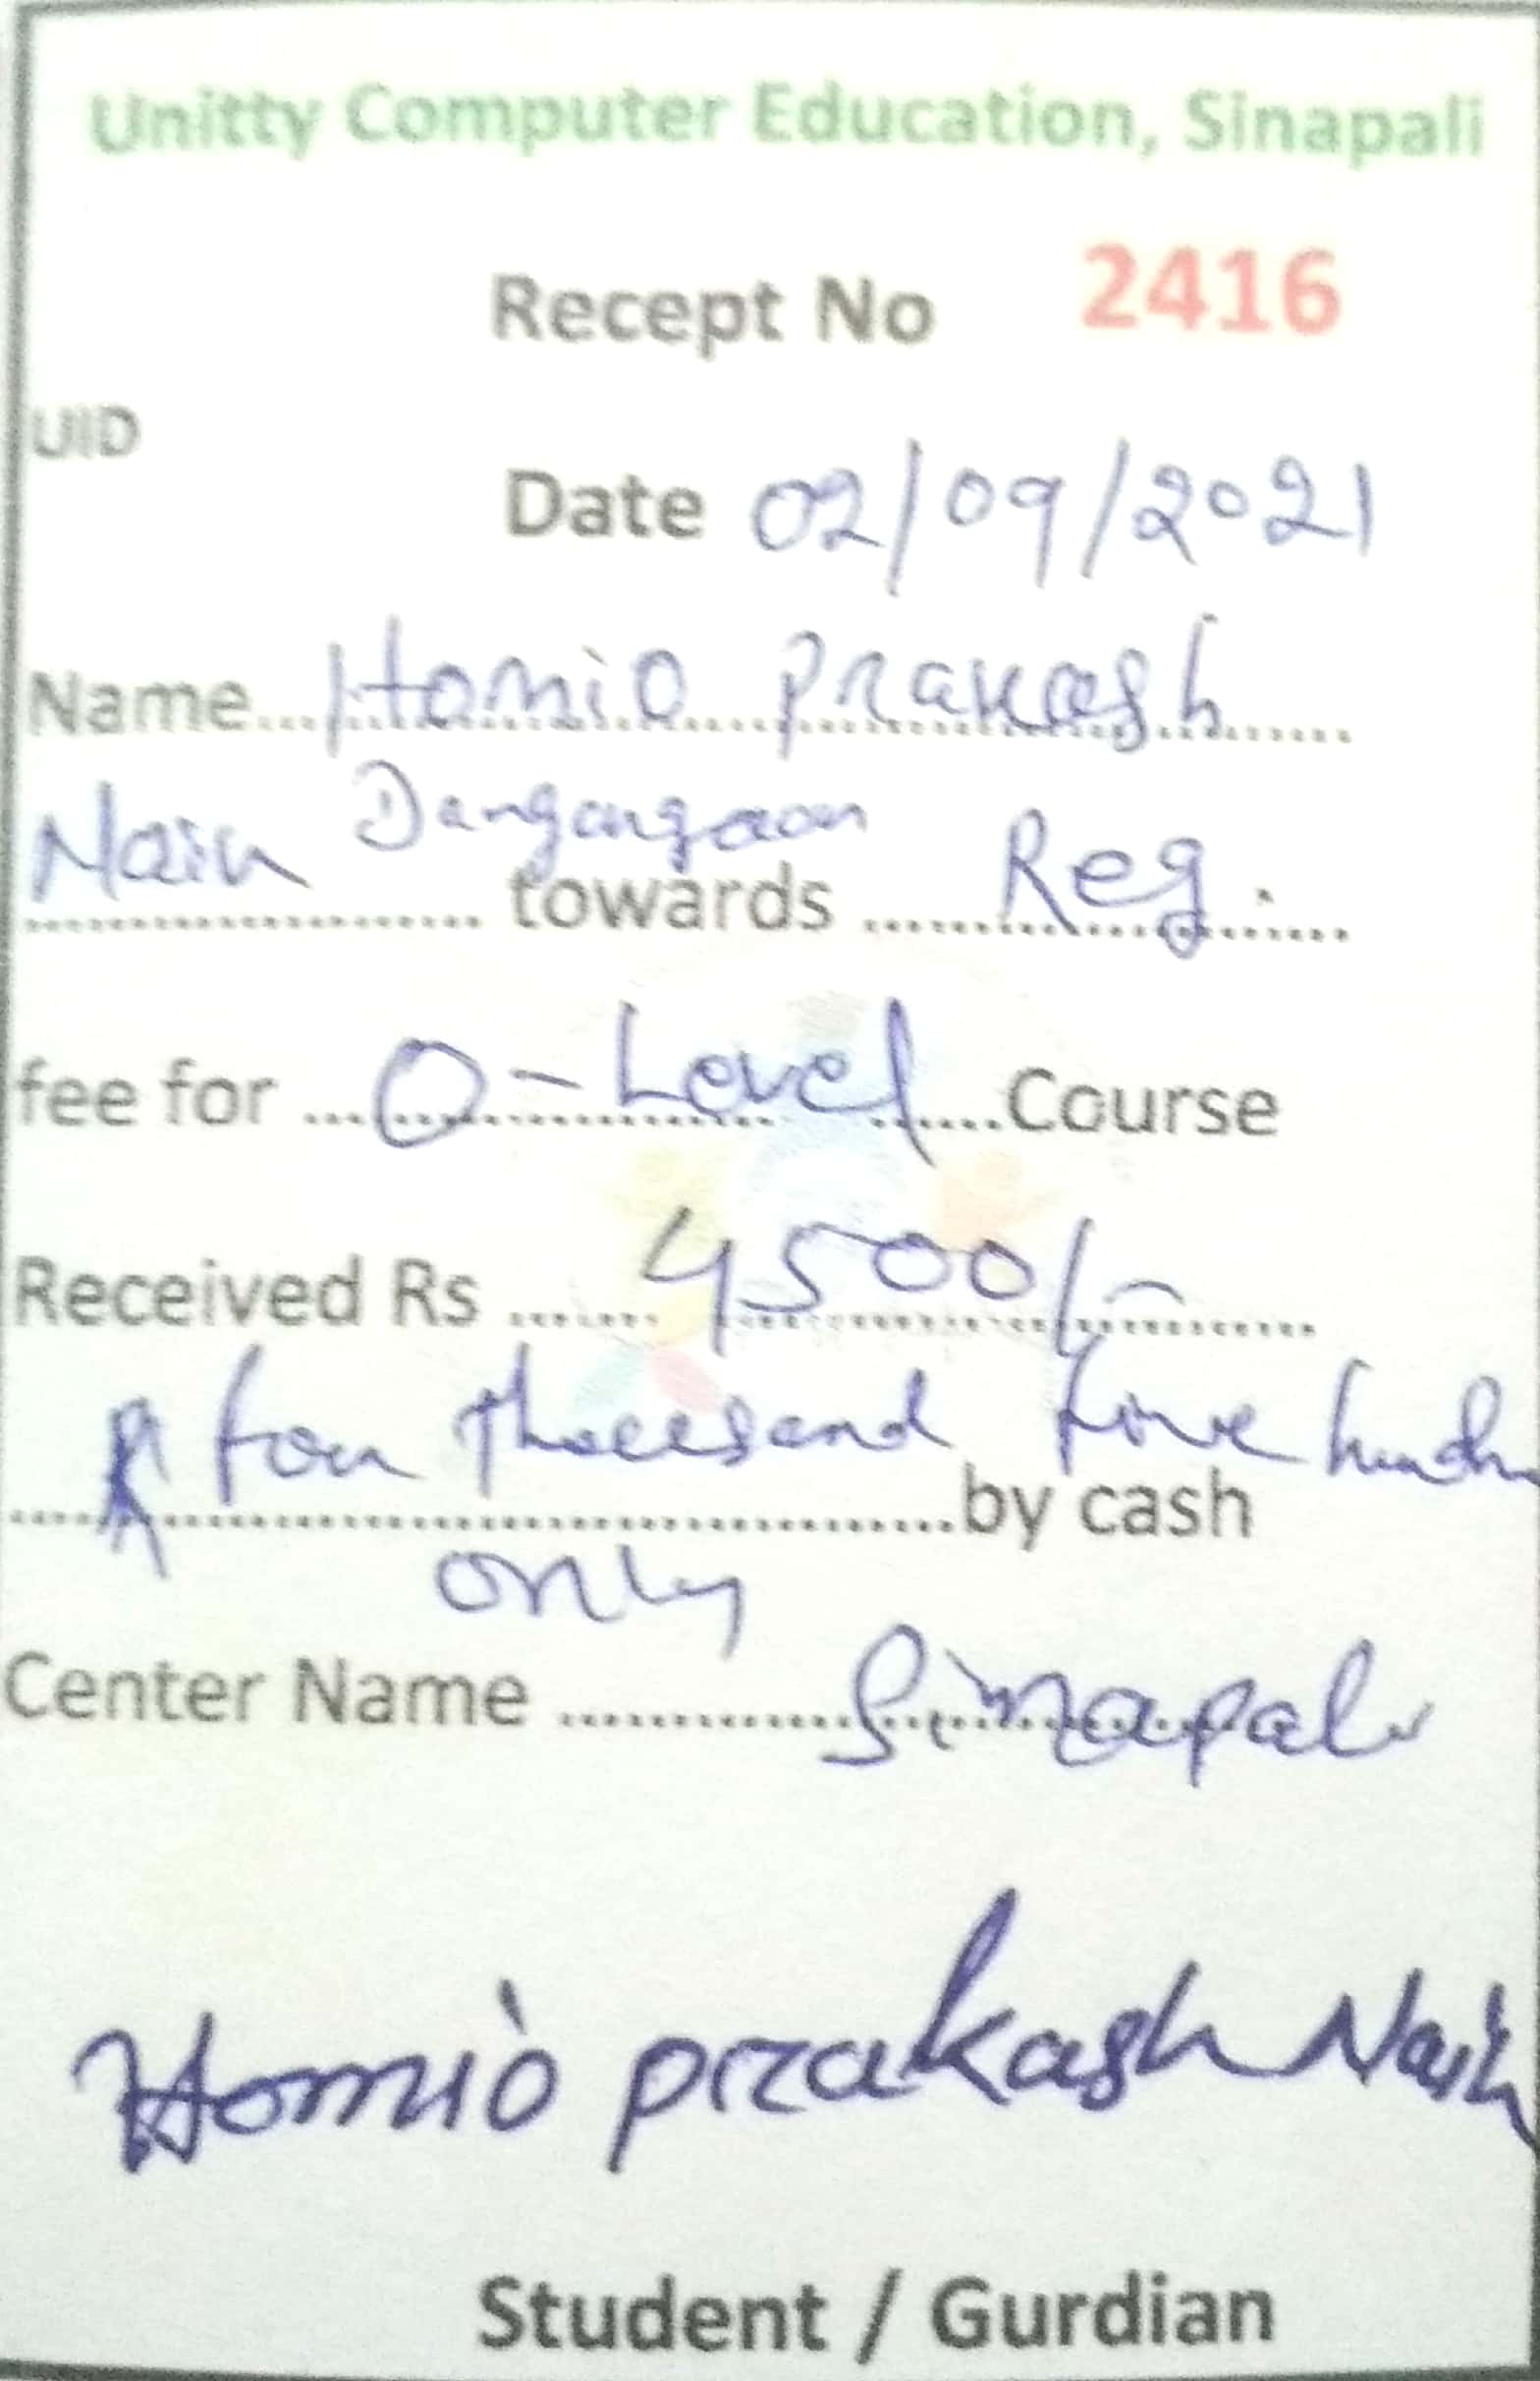 Unitty Computer Education, Sinapali
Recept No 2416
UID
Date 02/09/2021
Name...Homio Prakash......
Naik Dangargaon
.................... towards ....Reg.....
fee for ...O-Level......Course
Received Rs ......4500/-......
four thousand five hundr
..............................by cash
only
Center Name ............Sinapali
Homio prakash Naik
Student / Gurdian